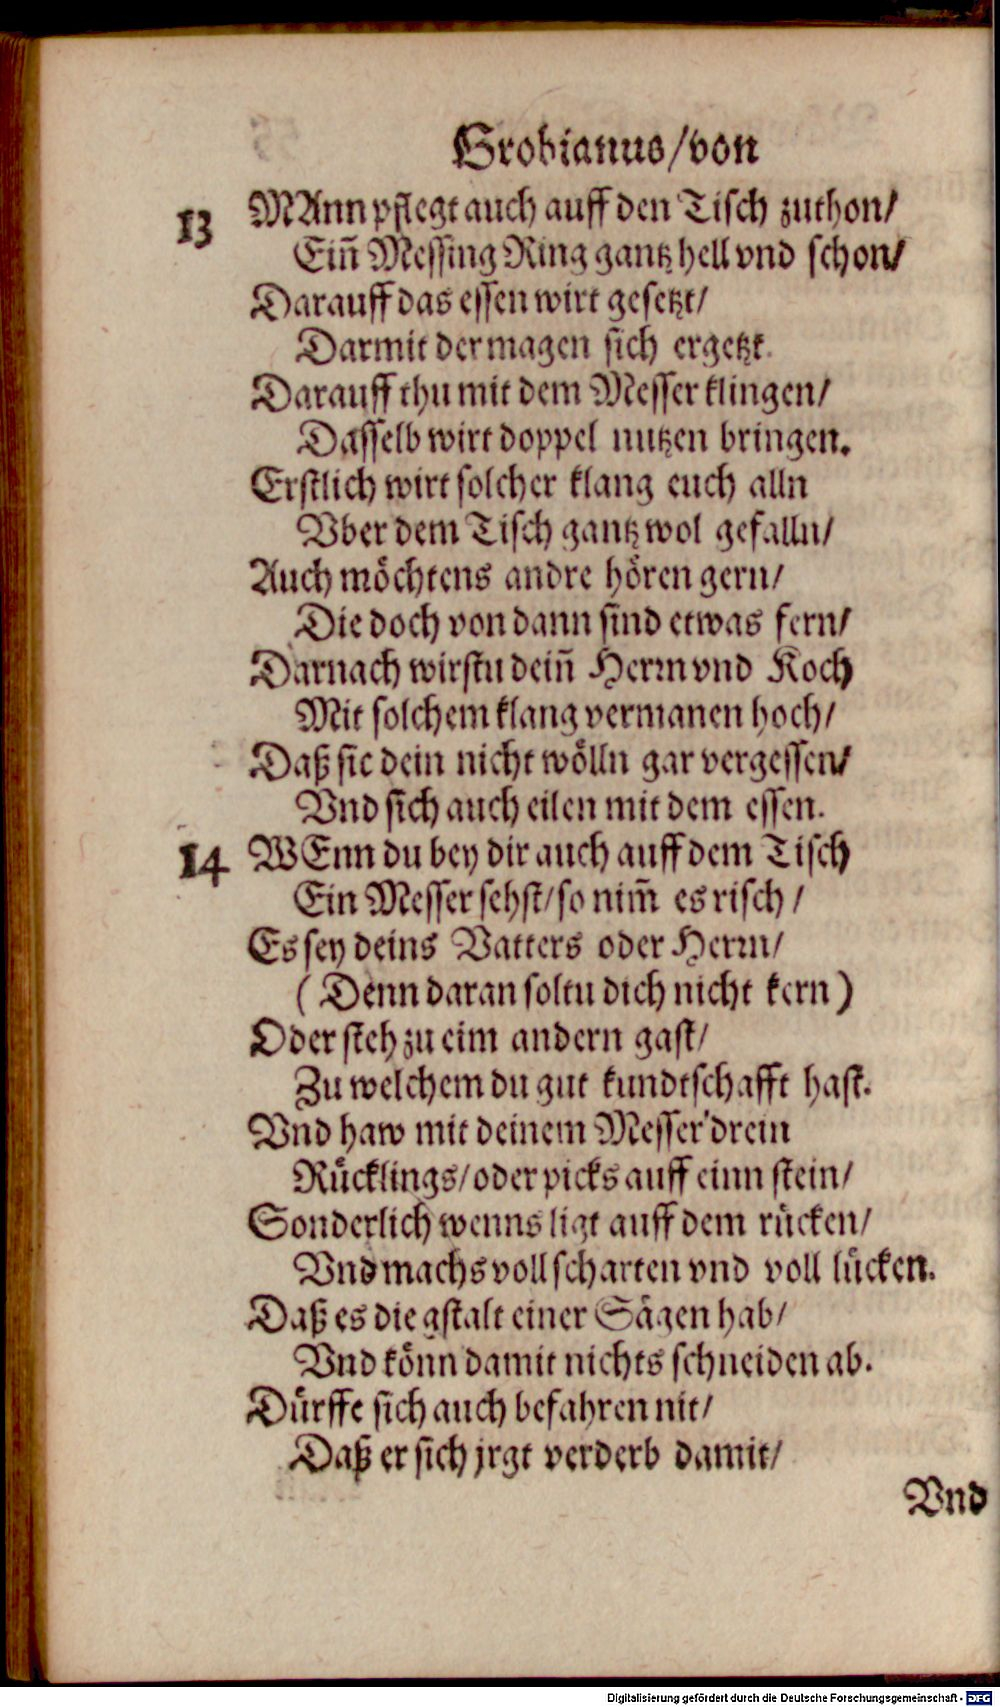 Grobianus/von
13 MAnn pflegt auch auff den Tisch zuthon/
Ein̄ Messing Ring gantz hell vnd schon/
Darauff das essen wirt gesetzt/
Darmit der magen sich ergetzt.
Darauff thu mit dem Messer klingen/
Dasselb wirt doppel nutzen bringen.
Erstlich wirt solcher klang euch alln
Vber dem Tisch gantz wol gefalln/
Auch möchtens andre hören gern/
Die doch von dann sind etwas fern/
Darnach wirstu dein̄ Herrn vnd Koch
Mit solchem klang vermanen hoch/
Daß sie dein nicht wölln gar vergessen/
Vnd sich auch eilen mit dem essen.
14 WEnn du bey dir auch auff dem Tisch
Ein Messer sehst/so nim̄ es risch/
Es sey deins Vatters oder Herrn/
(Denn daran soltu dich nicht kern)
Oder steh zu eim andern gast/
Zu welchem du gut kundtschafft hast.
Vnd haw mit deinem Messer drein
Rücklings/oder picks auff einn stein/
Sonderlich wenns ligt auff dem rücken/
Vnd machs voll scharten vnd voll lücken.
Daß es die gstalt einer Sägen hab/
Vnd könn damit nichts schneiden ab.
Dürffe sich auch befahren nit/
Daß er sich jrgt verderb damit/
Vnd
Digitalisierung gefördert durch die Deutsche Forschungsgemeinschaft - DFG